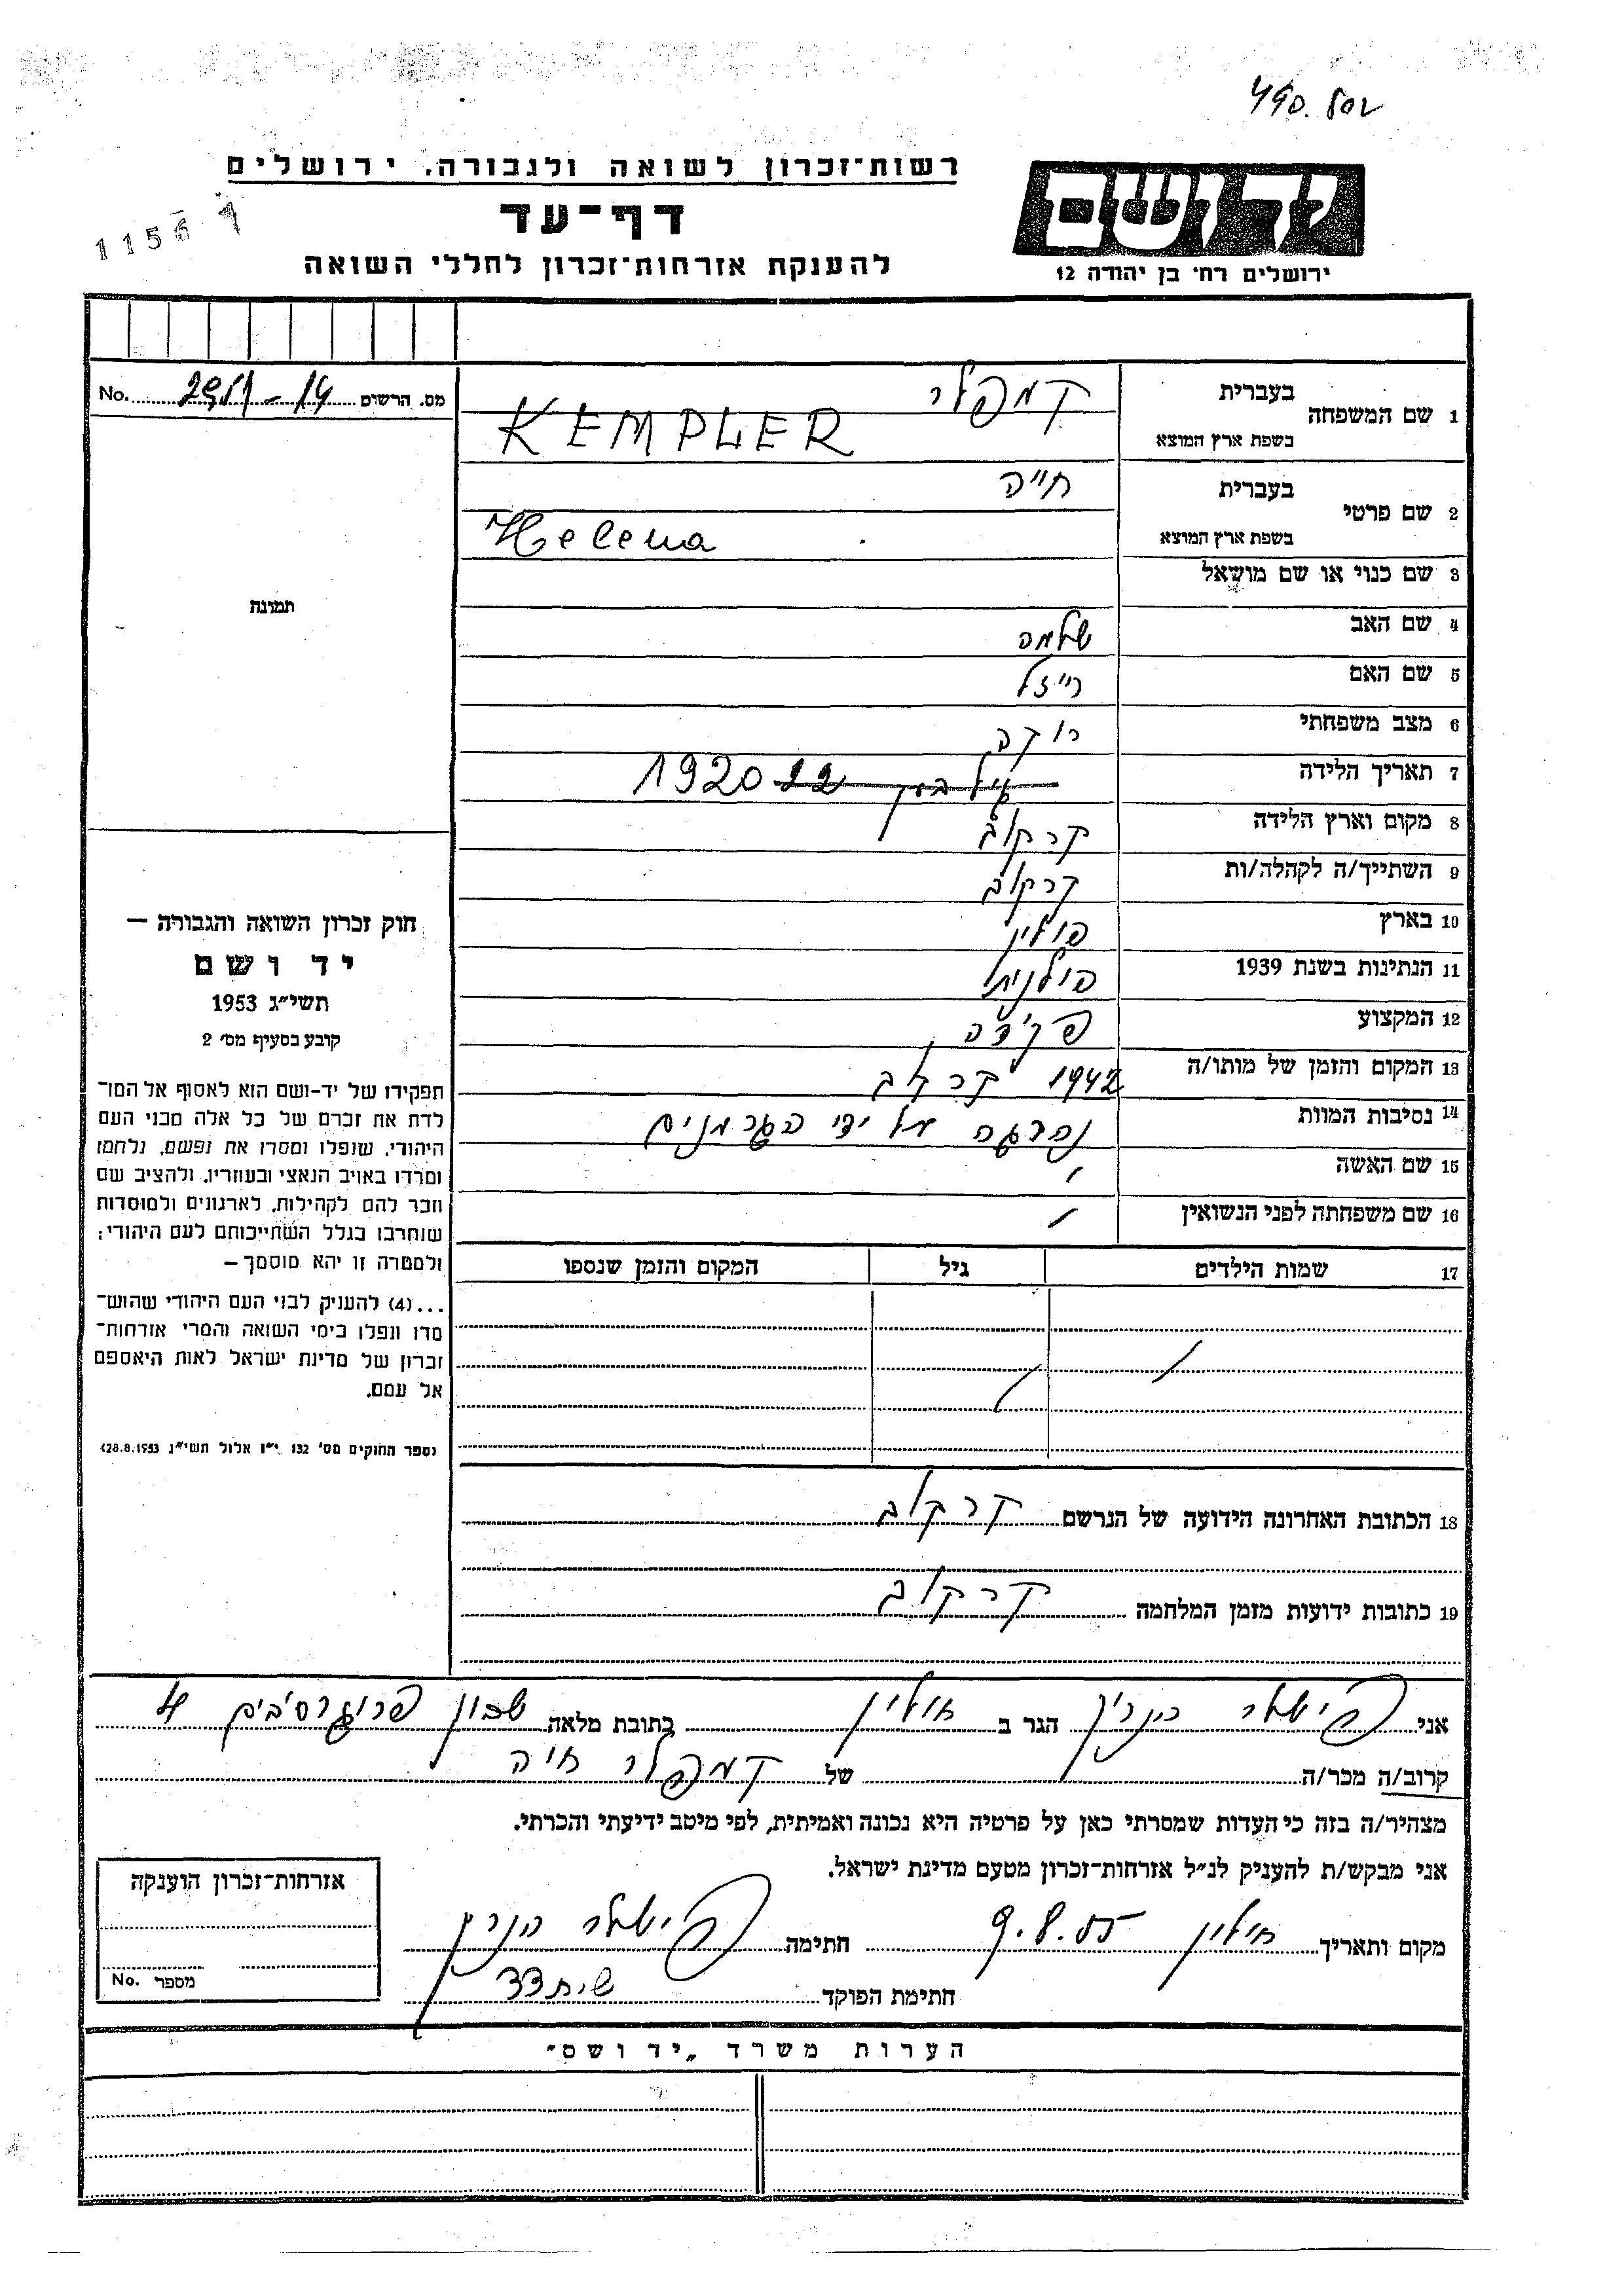 רשות־זכרון לשואה ולגבורה, ירושלים
יד ושם
דף־עד
1156
להענקת אזרחות־זכרון לחללי השואה
ירושלים רח׳ בן יהודה 12
מס. הרשום 14 - No.
1 שם המשפחה בעברית קמפלר
בשפת ארץ המוצא KEMPLER
2 שם פרטי בעברית חייה
בשפת ארץ המוצא Helena
תמונה
3 שם כנוי או שם מושאל
4 שם האב שלמה
5 שם האם רייזל
6 מצב משפחתי רוקה
7 תאריך הלידה 22 1920
8 מקום וארץ הלידה קרקוב
9 השתייך/ה לקהלה/ות קרקוב
10 בארץ פולין
11 הנתינות בשנת 1939 פולנית
12 המקצוע פקידה
13 המקום והזמן של מותו/ה 1942 קרקוב
14 נסיבות המוות נהרגה על ידי הגרמנים
15 שם האשה
16 שם משפחתה לפני הנשואין
17 שמות הילדים גיל המקום והזמן שנספו
חוק זכרון השואה והגבורה —
יד ושם
תשי״ג 1953
קובע בסעיף מס׳ 2
תפקידו של יד-ושם הוא לאסוף אל המו־
לדת את זכרם של כל אלה מבני העם
היהודי, שנפלו ומסרו את נפשם, נלחמו
ומרדו באויב הנאצי ובעוזריו, ולהציב שם
וזכר להם לקהילות, לארגונים ולמוסדות
שנחרבו בגלל השתייכותם לעם היהודי;
ולמטרה זו יהא מוסמך —
...(4) להעניק לבני העם היהודי שהוש־
מדו ונפלו בימי השואה והמרי אזרחות־
זכרון של מדינת ישראל לאות היאספם
אל עמם.
(ספר החוקים מס׳ 132 י״ז אלול תשי״ג 28.8.1953)
18 הכתובת האחרונה הידועה של הנרשם קרקוב
19 כתובות ידועות מזמן המלחמה קרקוב
אני הנריק הגר ב חולון כתובת מלאה שכון פרוגרסיבים 4
קרוב/ה מכר/ה של קמפלר חיה
מצהיר/ה בזה כי העדות שמסרתי כאן על פרטיה היא נכונה ואמיתית, לפי מיטב ידיעתי והכרתי.
אני מבקש/ת להעניק לנ״ל אזרחות-זכרון מטעם מדינת ישראל.
מקום ותאריך חולון 9.8.55 חתימה
חתימת הפוקד
אזרחות־זכרון הוענקה
מספר No.
הערות משרד „יד ושם״